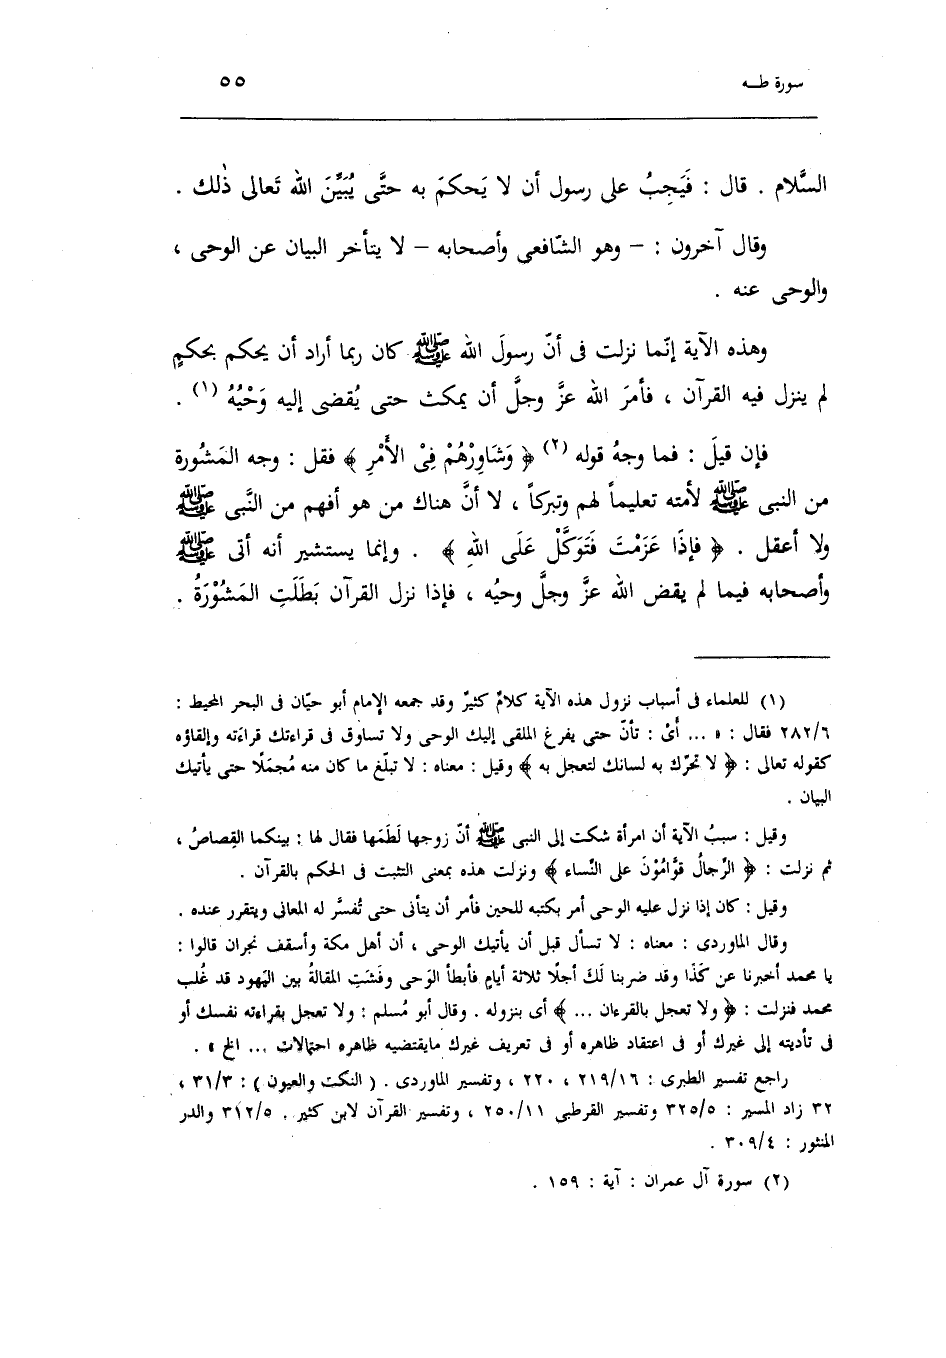 سورة طــه ٥٥
السَّلام . قال : فَيَجِبُ على رسول أن لا يَحكمَ به حتَّى يُبَيِّنَ الله تَعالى ذٰلك .
وقال آخرون : – وهو الشّافعى وأصحابه – لا يتأخر البيان عن الوحى ،
والوحى عنه .
وهذه الآية إنّما نزلت فى أنّ رسولَ الله ﷺ كان ربما أراد أن يحكم بحكمٍ
لم ينزل فيه القرآن ، فأمرَ الله عزَّ وجلَّ أن يمكث حتى يُقضى إليه وَحْيُهُ (١) .
فإن قيلَ : فما وجهُ قوله (٢) ﴿ وَشَاوِرْهُمْ فِىْ الأَمْرِ ﴾ فقل : وجه المَشُورة
من النبى ﷺ لأمته تعليماً لهم وتبركاً ، لا أنَّ هناك من هو أفهم من النَّبى ﷺ
ولا أعقل . ﴿ فإذَا عَزَمْتَ فَتَوَكَّلْ عَلَى اللهِ ﴾ . وإنما يستشير أنه أتى ﷺ
وأصحابه فيما لم يقض الله عزَّ وجلَّ وحيُه ، فإذا نزل القرآن بَطَلَتِ المَشُوْرَةُ .
(١) للعلماء فى أسباب نزول هذه الآية كلامٌ كثيرٌ وقد جمعه الإمام أبو حيّان فى البحر المحيط :
٢٨٢/٦ فقال : « ... أَىْ : تأنّ حتى يفرغ الملقى إليك الوحى ولا تساوق فى قراءتك قراءَته وإلقاؤه
كقوله تعالى : ﴿ لا تحرّك به لسانك لتعجل به ﴾ وقيل : معناه : لا تبلّغ ما كان منه مُجمَلًا حتى يأتيك
البيان .
وقيل : سببُ الآية أن امرأة شكت إلى النبى ﷺ أنّ زوجها لَطَمَها فقال لها : بينكما القِصاصُ ،
ثم نزلت : ﴿ الرِّجالُ قوَّامُوْنَ على النِّساء ﴾ ونزلت هذه بمعنى التثبت فى الحكم بالقرآن .
وقيل : كان إذا نزل عليه الوحى أمر بكتبه للحين فأمر أن يتأنى حتى تُفسَّر له المعانى ويتقرر عنده .
وقال الماوردى : معناه : لا تسأل قبل أن يأتيك الوحى ، أن أهل مكة وأسقف نجران قالوا :
يا محمد أخبرنا عن كَذَا وقد ضربنا لَكَ أجلًا ثلاثة أيامٍ فأبطأ الوَحى وفَشَتِ المقالةُ بين اليَهود قد غُلب
محمد فنزلت : ﴿ ولا تعجل بالقرءان ... ﴾ أى بنزوله . وقال أبو مُسلم : ولا تعجل بقراءته نفسك أو
فى تأديته إلى غيرك أو فى اعتقاد ظاهره أو فى تعريف غيرك مايقتضيه ظاهره احتمالات ... الخ » .
راجع تفسير الطبرى : ٢١٩/١٦ ، ٢٢٠ ، وتفسير الماوردى . ( النكت والعيون ) : ٣١/٣ ،
٣٢ زاد المسير : ٣٢٥/٥ وتفسير القرطبى ٢٥٠/١١ ، وتفسير القرآن لابن كثير . ٣١٢/٥ والدر
المنثور : ٣٠٩/٤ .
(٢) سورة آل عمران : آية : ١٥٩ .